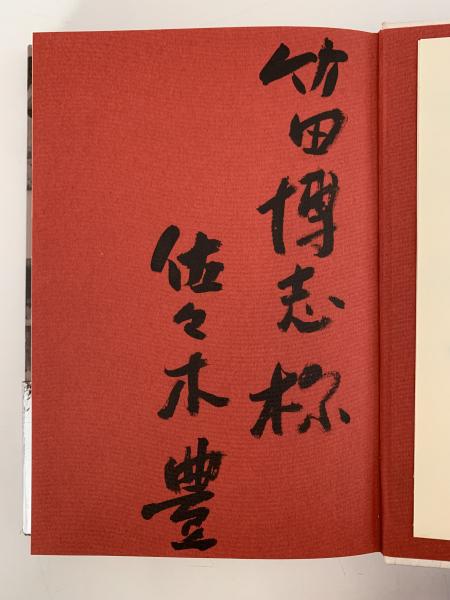 竹田博志様
佐々木豊